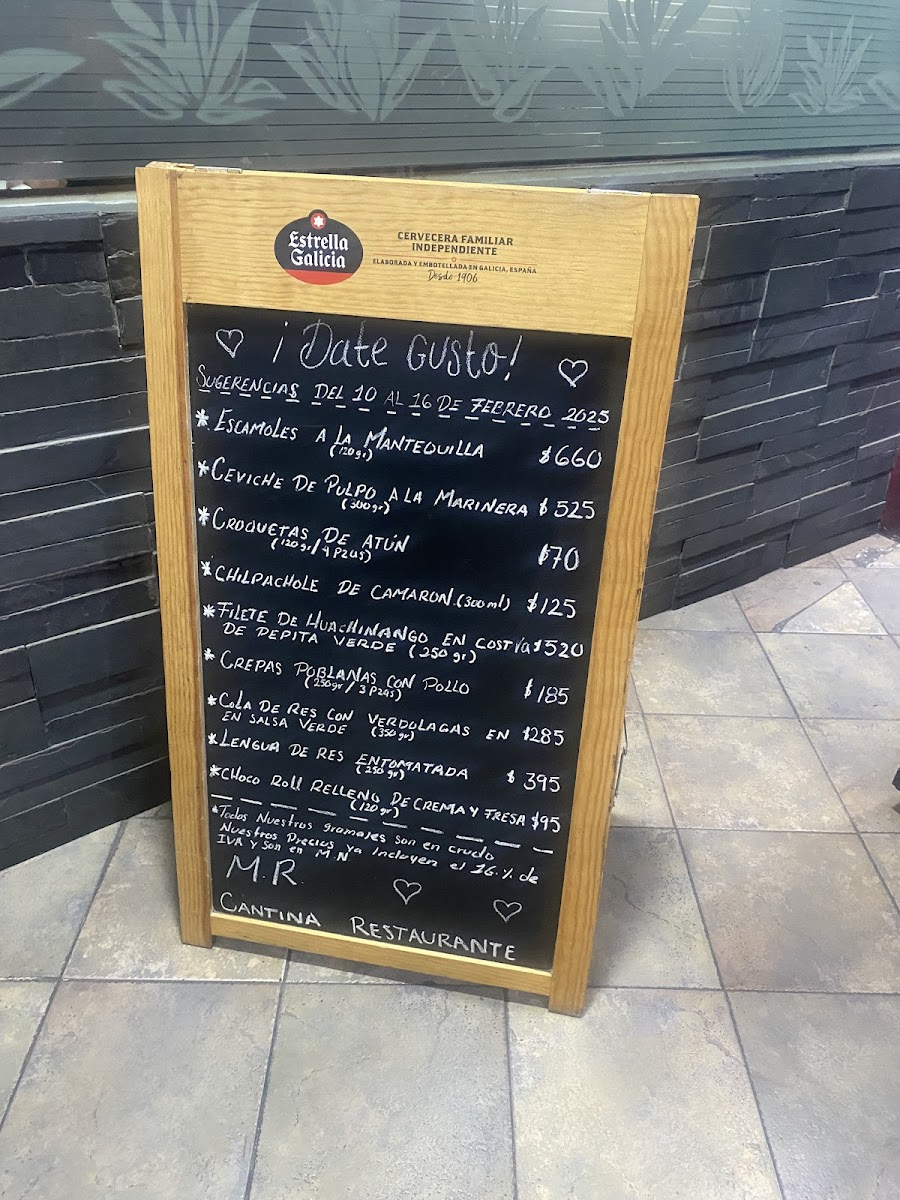 Estrella
Galicia
CERVECERA FAMILIAR
INDEPENDIENTE
ELABORADA Y EMBOTELLADA EN GALICIA, ESPAÑA
Desde 1906
¡Date Gusto!
SUGERENCIAS DEL 10 AL 16 DE FEBRERO 2025
* ESCAMOLES A LA MANTEQUILLA $660
(120gr)
* CEVICHE DE PULPO A LA MARINERA $525
(300gr)
* CROQUETAS DE ATÚN $170
(120gr/4 PZAS)
* CHILPACHOLE DE CAMARON (300ml) $125
* FILETE DE HUACHINANGO EN COSTRA $520
DE PEPITA VERDE (250gr)
* CREPAS POBLANAS CON POLLO $185
(250gr/3 PZAS)
* COLA DE RES CON VERDOLAGAS EN $285
EN SALSA VERDE (350gr)
* LENGUA DE RES ENTOMATADA $395
(250gr)
* CHOCO ROLL RELLENO DE CREMA Y FRESA $95
(120gr)
* Todos Nuestros gramajes son en crudo
Nuestros Precios ya Incluyen el 16% de
IVA y son en M.N
M.R.
CANTINA RESTAURANTE